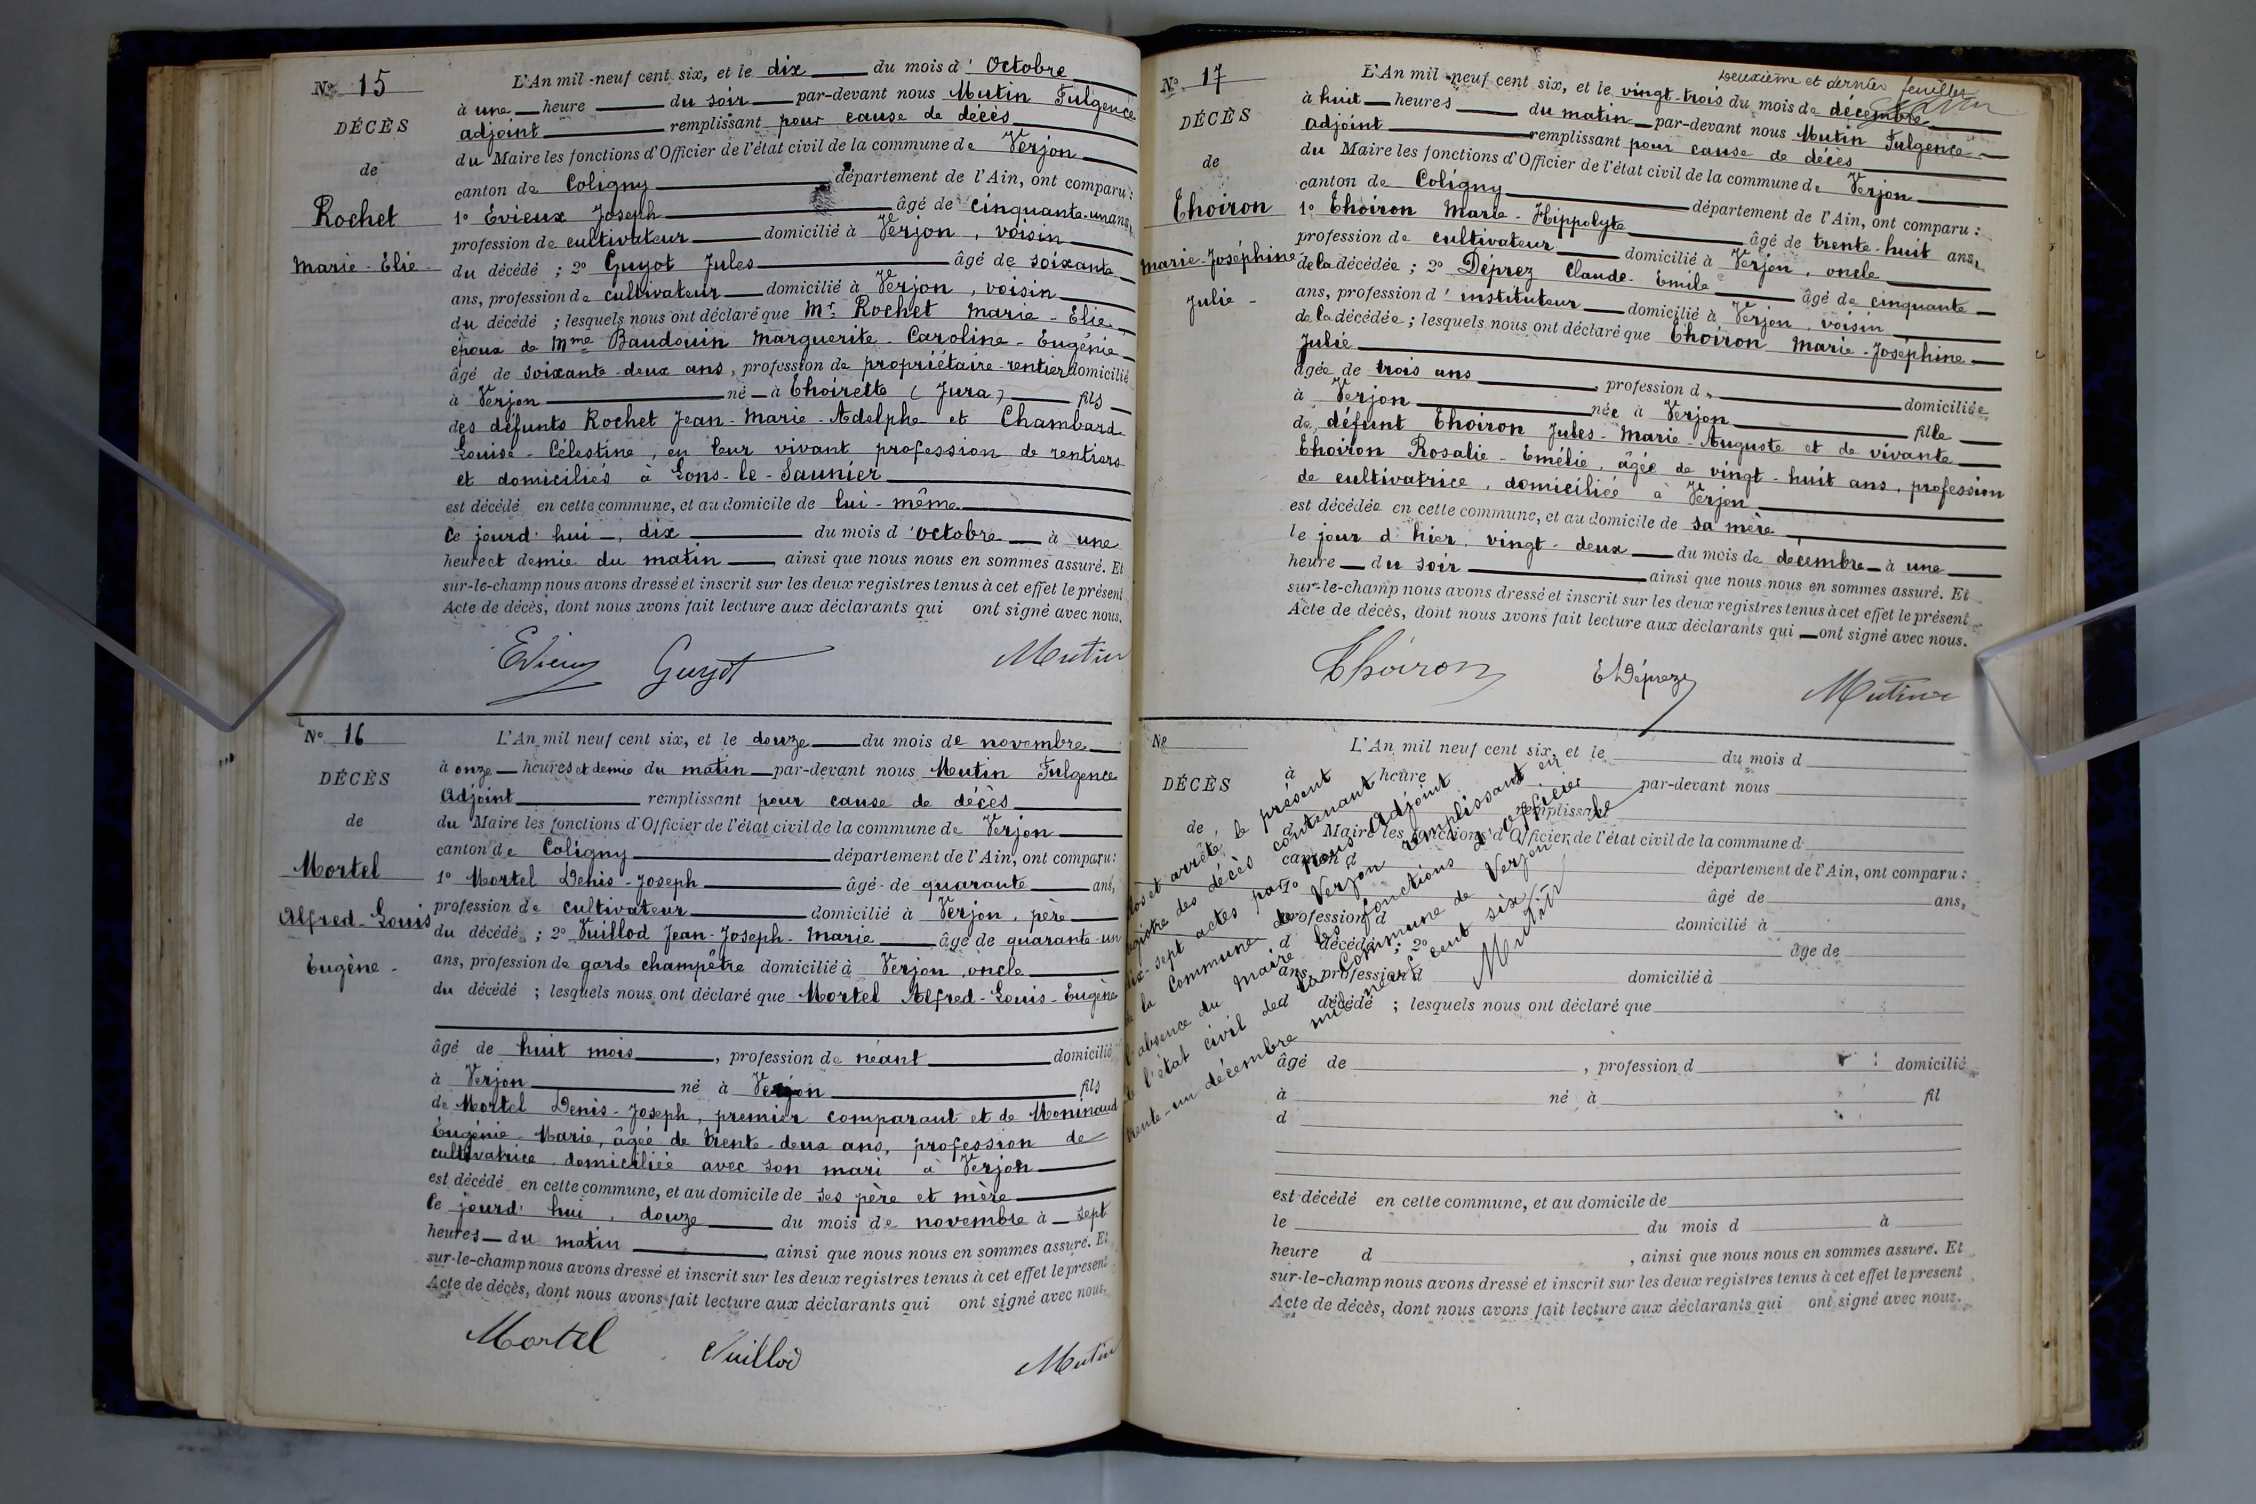 No 15
DÉCÈS
de
Rochet
Marie-Elie
L'An mil-neuf cent six, et le dix du mois d'Octobre
à une heure du soir par-devant nous Mutin Fulgence
adjoint remplissant pour cause de décès
du Maire les fonctions d'Officier de l'état civil de la commune de Verjon
canton de Coligny département de l'Ain, ont comparu:
1º Évieux Joseph âgé de cinquante-un ans,
profession de cultivateur domicilié à Verjon, voisin
du décédé; 2º Guyot Jules âgé de soixante
ans, profession de cultivateur domicilié à Verjon, voisin
du décédé; lesquels nous ont déclaré que Mr Rochet Marie-Elie,
époux de Mme Baudouin Marguerite-Caroline-Eugénie
âgé de soixante-deux ans, profession de propriétaire-rentier domicilié
à Verjon né à Thoirette (Jura) fils
des défunts Rochet Jean-Marie-Adelphe et Chambard
Louise-Célestine, en leur vivant profession de rentiers
et domiciliés à Lons-le-Saunier
est décédé en cette commune, et au domicile de lui-même
ce jourd'hui, dix du mois d'octobre à une
heure et demie du matin, ainsi que nous nous en sommes assuré. Et
sur-le-champ nous avons dressé et inscrit sur les deux registres tenus à cet effet le présent
Acte de décès, dont nous avons fait lecture aux déclarants qui ont signé avec nous.
Evieux Guyot Mutin
No 16
DÉCÈS
de
Mortel
Alfred-Louis
Eugène-
L'An mil neuf cent six, et le douze du mois de novembre
à onze heures et demie du matin par-devant nous Mutin Fulgence
Adjoint remplissant pour cause de décès
du Maire les fonctions d'Officier de l'état civil de la commune de Verjon
canton de Coligny département de l'Ain, ont comparu:
1º Mortel Denis-Joseph âgé de quarante ans,
profession de cultivateur domicilié à Verjon, père
du décédé; 2º Vuillod Jean-Joseph-Marie âgé de quarante-un
ans, profession de garde champêtre domicilié à Verjon, oncle
du décédé; lesquels nous ont déclaré que Mortel Alfred-Louis-Eugène
âgé de huit mois, profession de néant domicilié
à Verjon né à Verjon fils
de Mortel Denis-Joseph, premier comparant et de Moninaud
Eugénie-Marie, âgée de trente-deux ans, profession de
cultivatrice domiciliée avec son mari à Verjon
est décédé en cette commune, et au domicile de ses père et mère
ce jourd'hui, douze du mois de novembre à sept
heures du matin, ainsi que nous nous en sommes assuré. Et
sur-le-champ nous avons dressé et inscrit sur les deux registres tenus à cet effet le présent
Acte de décès, dont nous avons fait lecture aux déclarants qui ont signé avec nous.
Mortel Vuillod Mutin
Deuxième et dernier feuillet
No 17
DÉCÈS
de
Thoiron
Marie-Joséphine
Julie-
L'An mil-neuf cent six, et le vingt-trois du mois de décembre
à huit heures du matin par-devant nous Mutin Fulgence
adjoint remplissant pour cause de décès
du Maire les fonctions d'Officier de l'état civil de la commune de Verjon
canton de Coligny département de l'Ain, ont comparu:
1º Thoiron Marie-Hippolyte âgé de trente-huit ans,
profession de cultivateur domicilié à Verjon, oncle
de la décédée; 2º Déprez Claude-Emile âgé de cinquante
ans, profession d'instituteur domicilié à Verjon, voisin
de la décédée; lesquels nous ont déclaré que Thoiron Marie-Joséphine
Julie
âgée de trois ans, profession d domiciliée
à Verjon née à Verjon fille
de défunt Thoiron Jules-Marie-Auguste et de vivante
Thoiron Rosalie-Emélie, âgée de vingt-huit ans, profession
de cultivatrice, domiciliée à Verjon
est décédée en cette commune, et au domicile de sa mère
le jour d'hier, vingt-deux du mois de décembre à une
heure du soir ainsi que nous nous en sommes assuré. Et
sur-le-champ nous avons dressé et inscrit sur les deux registres tenus à cet effet le présent
Acte de décès, dont nous avons fait lecture aux déclarants qui ont signé avec nous.
Thoiron E Déprez Mutin
No
DÉCÈS
de
L'An mil neuf cent six, et le du mois d
à heure par-devant nous
d remplissant
Maire les fonctions d'Officier de l'état civil de la commune d
canton d département de l'Ain, ont comparu:
1º âgé de ans,
profession d domicilié à
d décédé; 2º âge de
ans, profession d domicilié à
d décédé; lesquels nous ont déclaré que
âgé de, profession d domicilié
à né à fil
d
est décédé en cette commune, et au domicile de
le du mois d à
heure d, ainsi que nous nous en sommes assuré. Et
sur-le-champ nous avons dressé et inscrit sur les deux registres tenus à cet effet le présent
Acte de décès, dont nous avons fait lecture aux déclarants qui ont signé avec nous.
Clos et arrêté le présent
registre des décès contenant
dix-sept actes par nous Adjoint
de la Commune de Verjon remplissant en
l'absence du Maire les fonctions d'officier
de l'état civil de la commune de Verjon le
trente-un décembre mil neuf cent six
Mutin